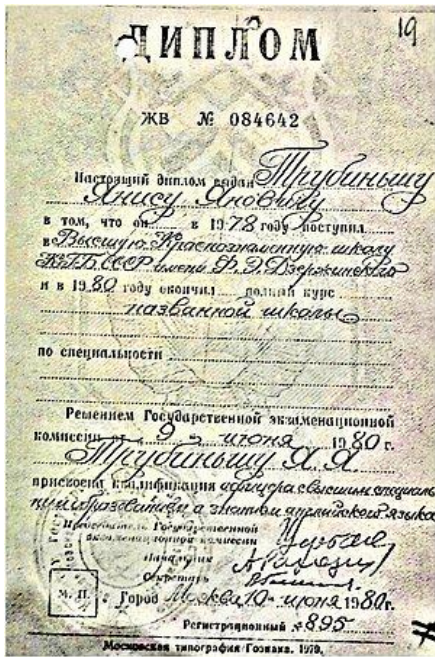 19
ДИПЛОМ
ЖВ № 084642
Настоящий диплом выдан Трубиньшу
Янису Яновичу
в том, что он в 1978 году поступил
в Высшую Краснознаменную школу
КГБ СССР имени Ф.Э.Дзержинского
и в 1980 году окончил полный курс
названной школы
по специальности
Решением Государственной экзаменационной
комиссии 9 июня 1980 г.
Трубиньшу Я. Я.
присвоена квалификация офицера с высшим специаль-
ным образованием, а знанием английского языка
Председатель Государственной
экзаменационной комиссии
Начальник
Секретарь
М. П. Город Москва 10 июня 1980г.
Регистрационный № 895
Московская типография Гознака. 1979.